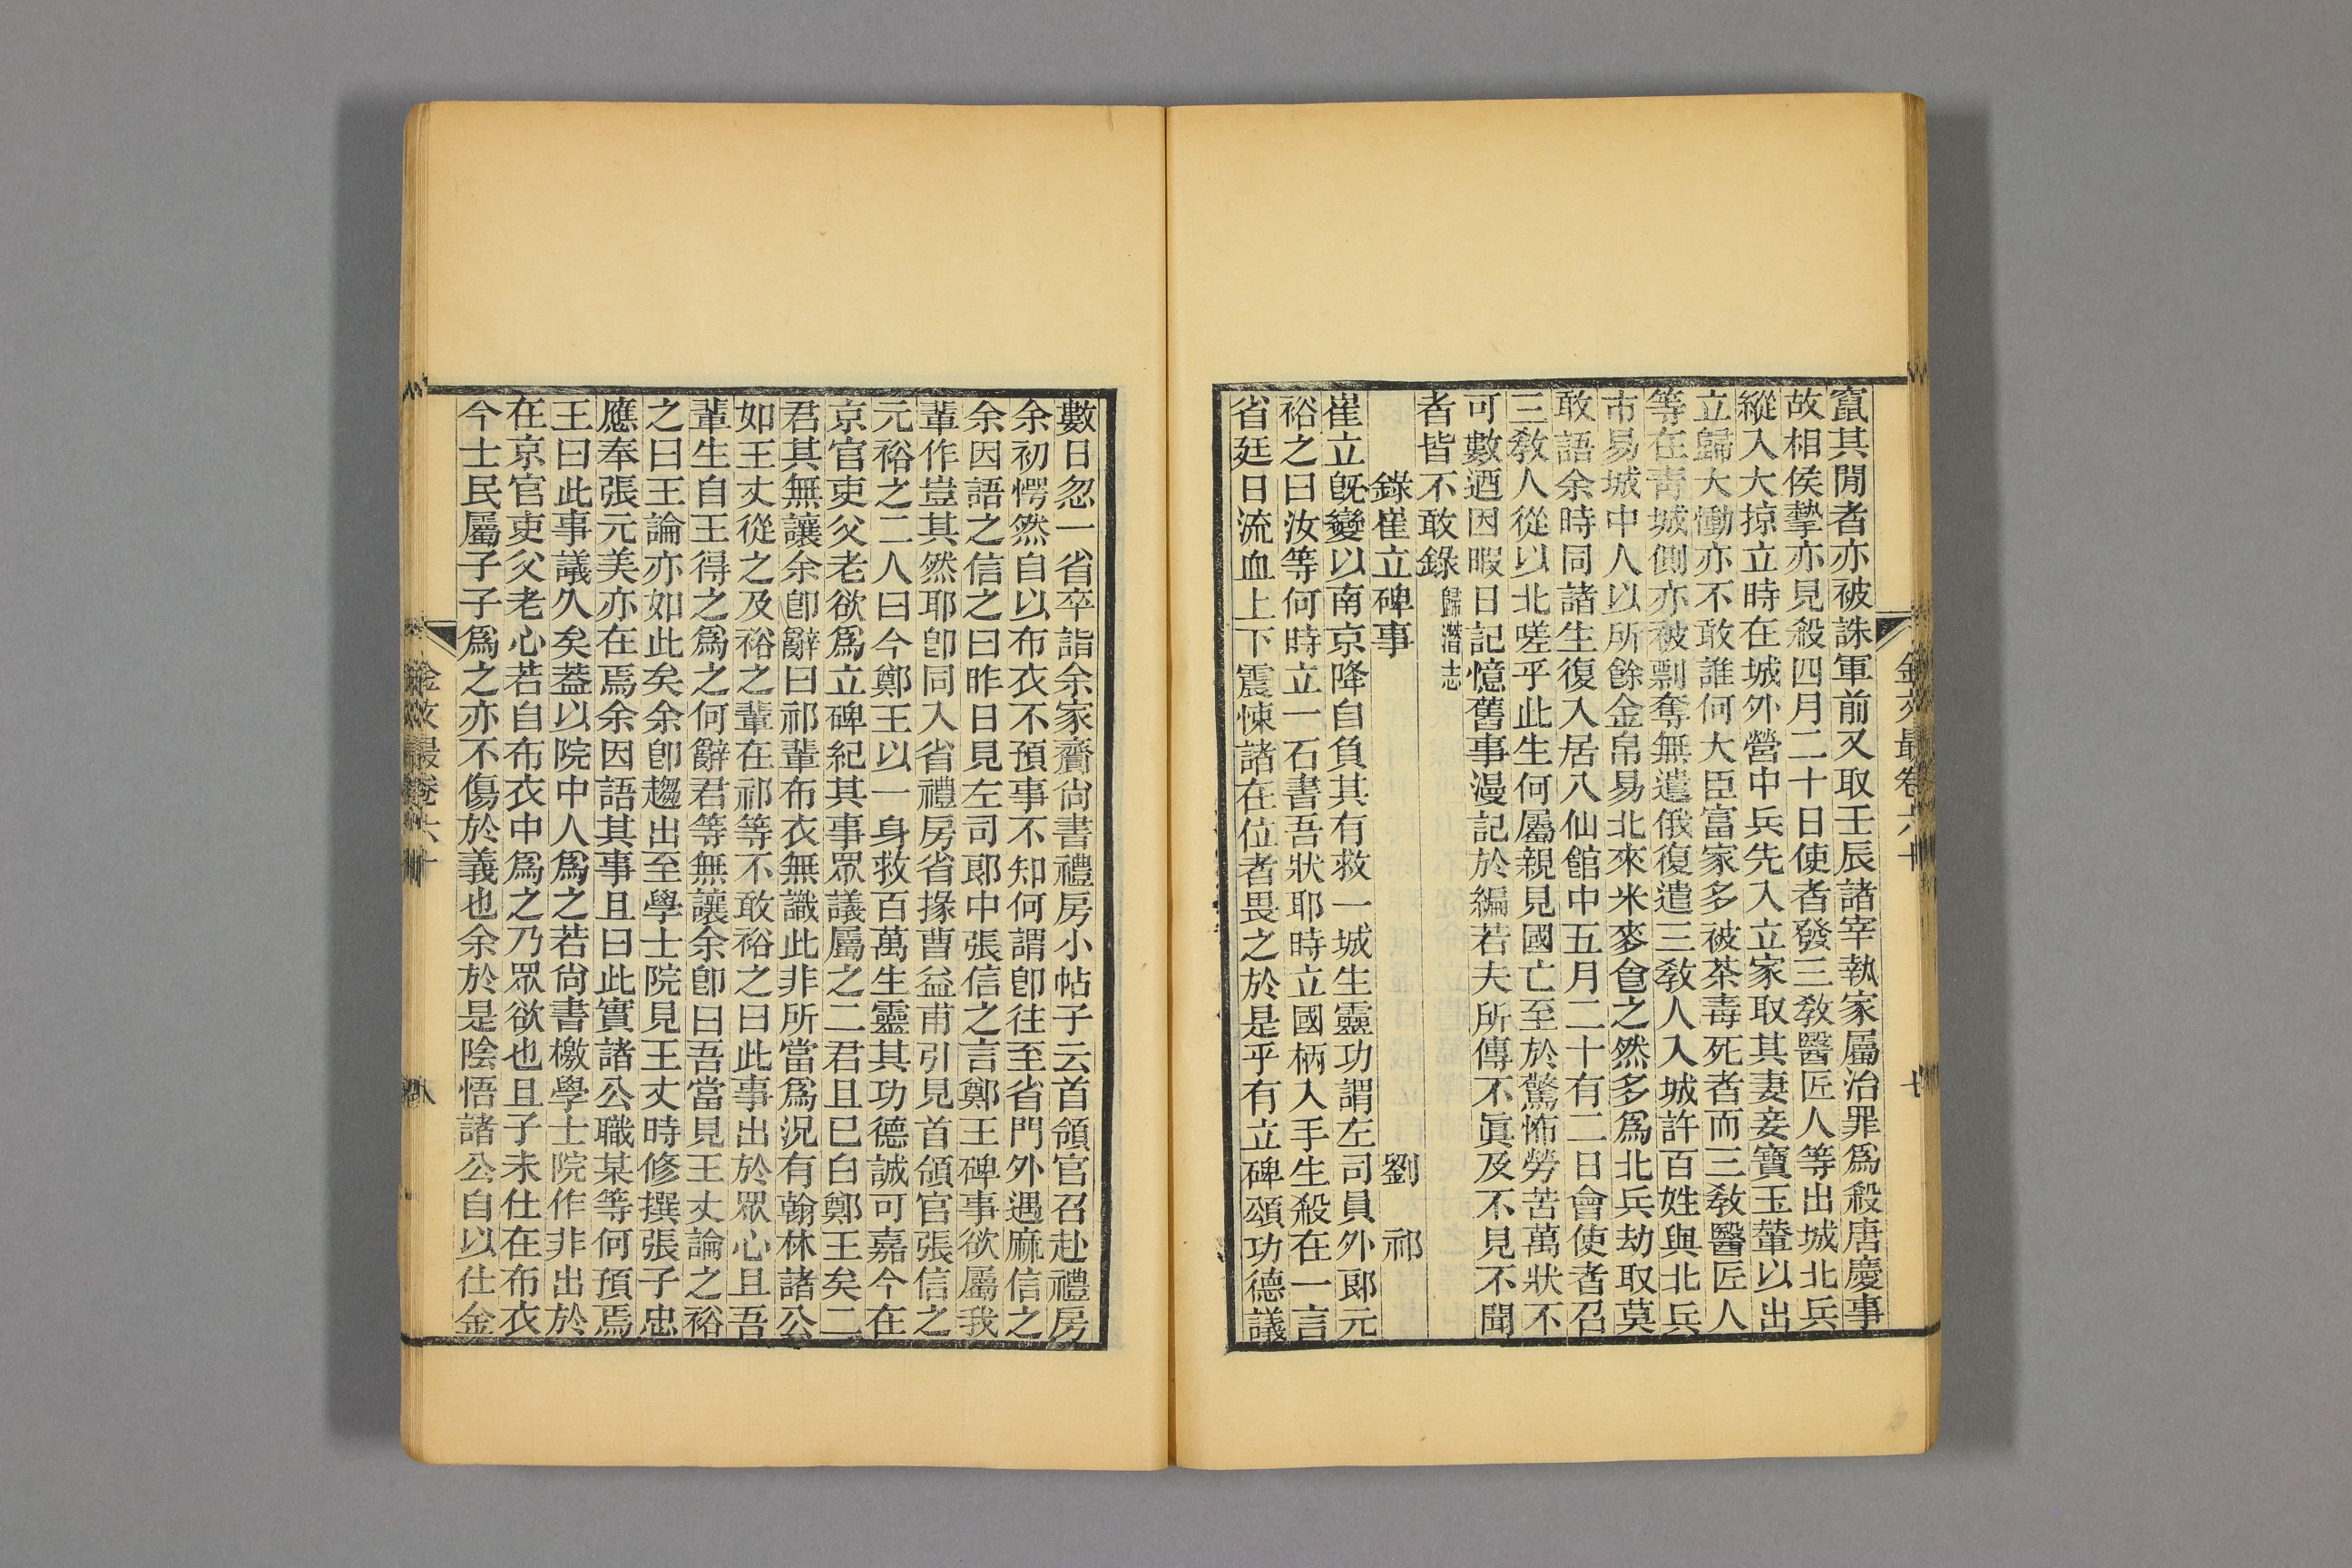 竄其閒者亦被誅軍前又取壬辰諸宰執家屬治罪爲殺唐慶事
故相侯摯亦見殺四月二十日使者發三敎醫匠人等出城北兵
縱入大掠立時在城外營中兵先入立家取其妻妾寶玉輦以出
立歸大慟亦不敢誰何大臣富家多被荼毒死者而三敎醫匠人
等在靑城側亦被剽奪無遺俄復遣三敎人入城許百姓與北兵
市易城中人以所餘金帛易北來米麥食之然多爲北兵劫取莫
敢語余時同諸生復入居八仙館中五月二十有二日會使者召
三敎人從以北嗟乎此生何屬親見國亡至於驚怖勞苦萬狀不
可數迺因暇日記憶舊事漫記於編若夫所傳不眞及不見不聞
者皆不敢錄 歸潛志
錄崔立碑事 劉祁
崔立旣變以南京降自負其有救一城生靈功謂左司員外郞元
裕之曰汝等何時立一石書吾狀耶時立國柄入手生殺在一言
省廷日流血上下震悚諸在位者畏之於是乎有立碑頌功德議
金文最卷六十 七
數日忽一省卒詣余家齎尙書禮房小帖子云首領官召赴禮房
余初愕然自以布衣不預事不知何謂卽往至省門外遇麻信之
余因語之信之曰昨日見左司郞中張信之言鄭王碑事欲屬我
輩作豈其然耶卽同入省禮房省掾曹益甫引見首領官張信之
元裕之二人曰今鄭王以一身救百萬生靈其功德誠可嘉今在
京官吏父老欲爲立碑紀其事眾議屬之二君且已白鄭王矣二
君其無讓余卽辭曰祁輩布衣無識此非所當爲況有翰林諸公
如王丈從之及裕之輩在祁等不敢裕之曰此事出於眾心且吾
輩生自王得之爲之何辭君等無讓余卽曰吾當見王丈論之裕
之曰王論亦如此矣余卽趨出至學士院見王丈時修撰張子忠
應奉張元美亦在焉余因語其事且曰此實諸公職某等何預焉
王曰此事議久矣葢以院中人爲之若尙書檄學士院作非出於
在京官吏父老心若自布衣中爲之乃眾欲也且子未仕在布衣
今士民屬子子爲之亦不傷於義也余於是陰悟諸公自以仕金
金文最卷六十 八